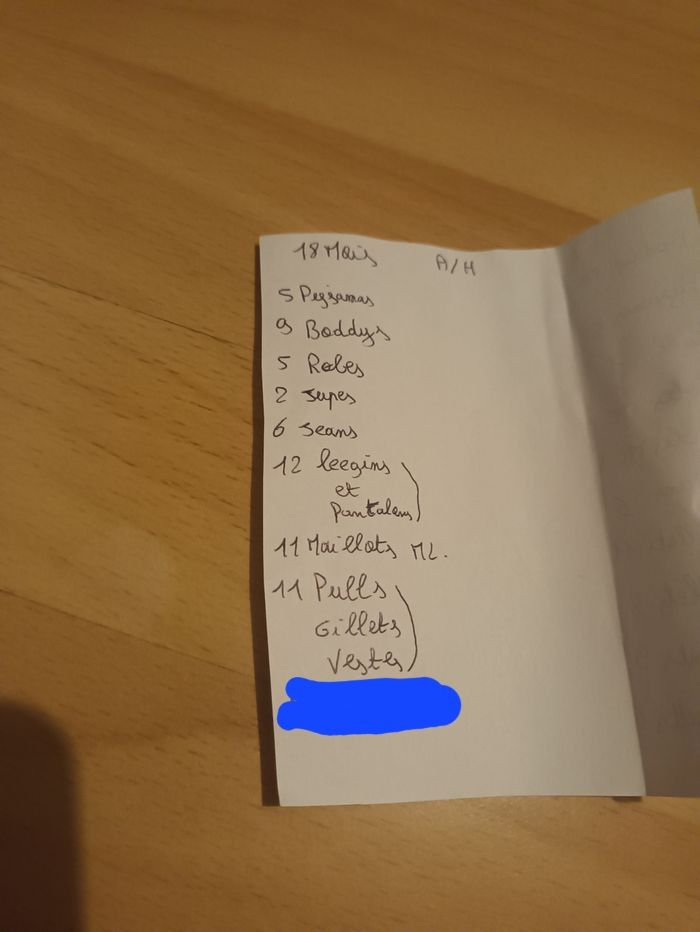 18 Mois
A/H
5 Pyjamas
9 Boddys
5 Robes
2 Jupes
6 Jeans
12 leegins
et
Pantalons
11 Maillots ML.
11 Pulls
Gillets
Vestes